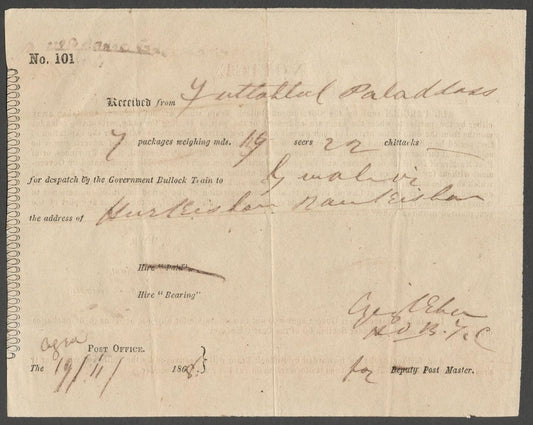 No. 101
Received from Futtehlal Paladdoss
7 packages weighing mds. 19 seers 22 chittacks —
for despatch by the Government Bullock Train to Gwalior
the address of Hurkishen Ramkishen
Hire "Paid"
Hire "Bearing"
H O B. T. C
Agra POST OFFICE.
The 19/11/ 186
for Deputy Post Master.